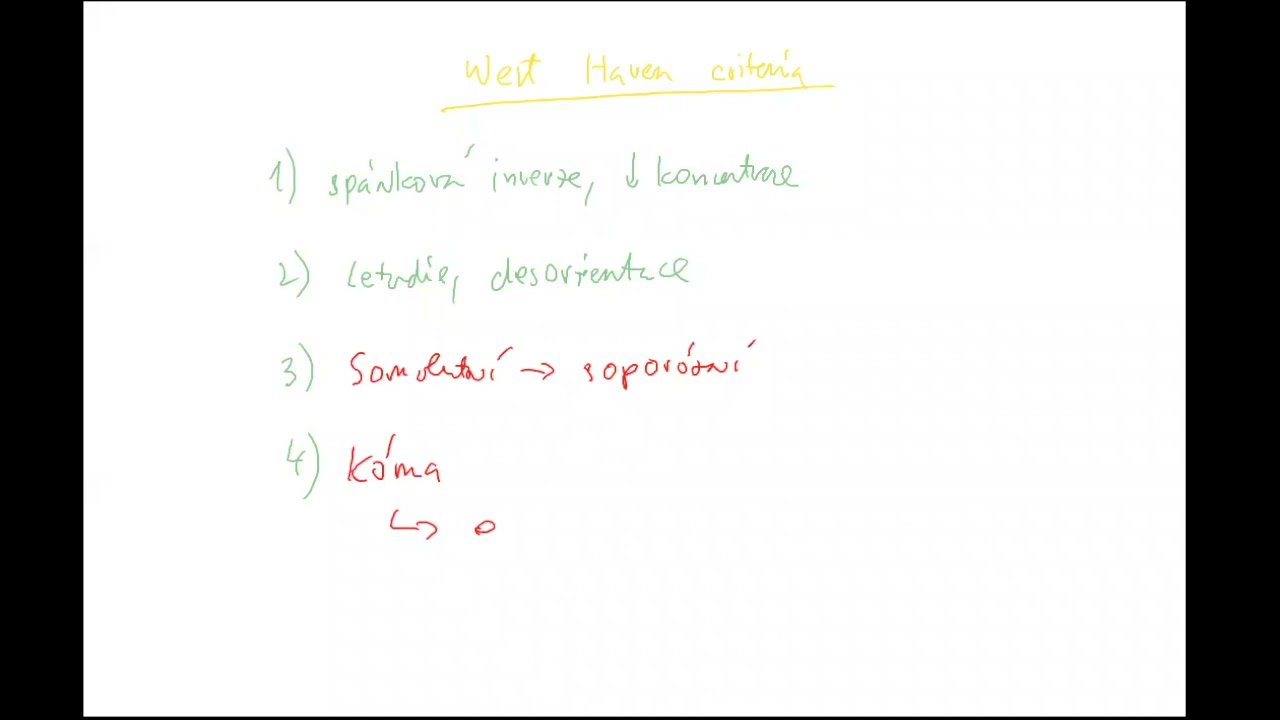 West Haven criteria
1) spánková inverze, ↓ koncentrace
2) letargie, desorientace
3) Somolentní → soporózní
4) Kóma
↳ ø